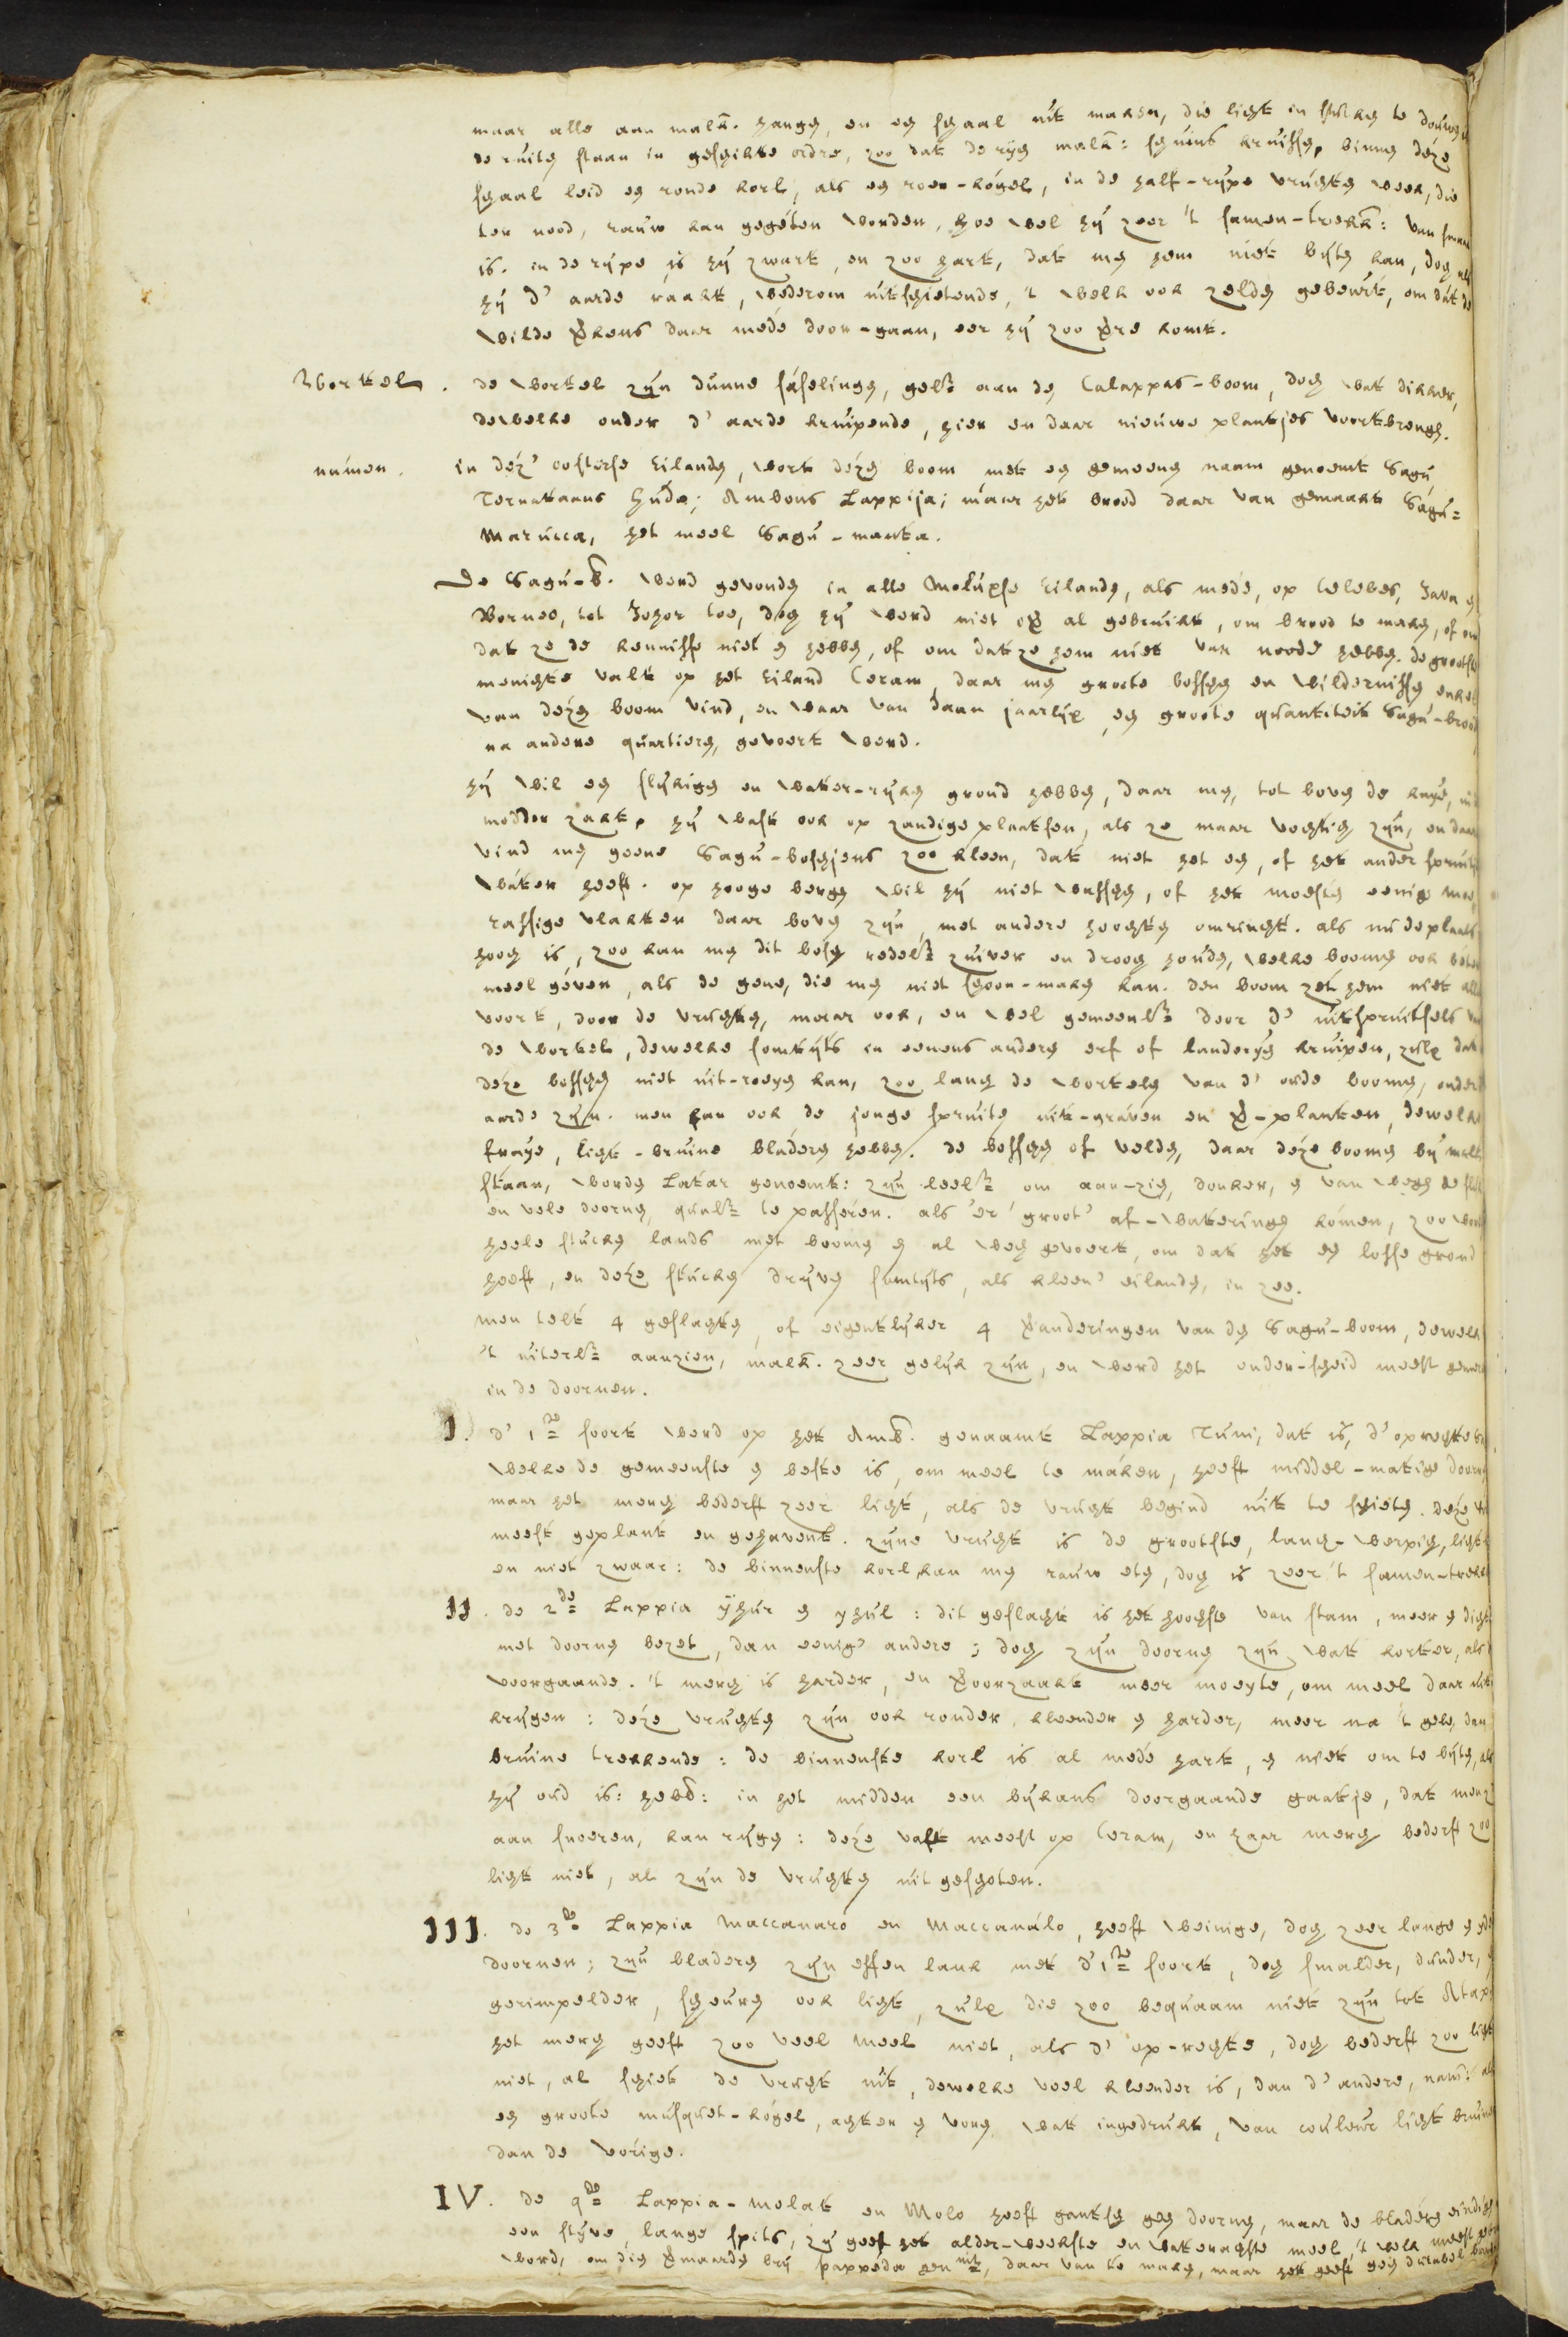 maar alle aan malk. hangen, en een schaal uit maken, die licht in stucken te douwen
de ruiten staan in geschikte ordre, zoo dat de ryen malk: schuins kruissen, binnen deze
schaal leid een ronde korl, als een roer-kogel, in de half-rype vruchten week, die
ter nood, rauw kan gegeten worden, hoe wel hy zeer 't samen-trekk: van smaak
is. in de rype is hy zwart, en zoo hart, dat men hem niet byten kan, doch als
hy d' aarde raakt, wederom uitschietende, 't welk ook zelden gebeurt, om dat de
wilde verkens daar mede door-gaan, eer hy zoo verre komt.
Wortel. de wortel zyn dunne faselingen, gelyk aan den Calappas-boom, doch wat dikker,
dewelke onder d' aarde kruipende, hier en daar nieuwe plantjes voortbrengen.
namen. in dez' oosterse Eilanden, wort dezen boom met een gemeenen naam genoemt Sagu
Ternataans Huda; Ambons Lappija; maar het brood daar van gemaakt Sagu=
Marucca, het meel Sagu-manta.
De Sagu-b. werd gevonden in alle Moluxse Eilanden, als mede, op Celebes, Java en
Borneo, tot Johor toe, doch hy werd niet over al gebruikt, om brood te maken, of om
dat ze de kennisse niet en hebben, of om dat ze hem niet van noode hebben. de grootste
menichte valt op het Eiland Ceram, daar men groote bosschen en wildernissen enkel
van dezen boom vind, en waar van daan jaarlyx, een groote quantiteit Sagu-brood
na andere quartieren, gevoert werd.
hy wil een slykigen en water-ryken grond hebben, daar men, tot boven de knyen, in
modder zakt, hy wast ook op zandige plaatsen, als ze maar vochtich zyn, en daar
vind men geene Sagu-boschjens zoo kleen, dat niet het een, of het ander spruitje
water heeft. op hooge bergen wil hy niet wassen, of het moesten eenige moe
rassige vlakken daar boven zyn, met andere hoochten omringt. als nu de plaats
hooch is, zoo kan men dit bosch redelyk zuiver en drooch houden, welke boomen ook beter
meel geven, als de gene, die men niet schoon-maken kan. den boom zet hem niet alle
voort, door de vruchten, maar ook, en wel gemeenlyk door d' uitspruitsels van
de wortel, dewelke somtyts in eenens anders erf of landeryen kruipen, zulx dat
deze bosschen niet uit-roeyen kan, zoo lang de wortelen van d' oude boomen, onder d
aarde zyn. men kan ook de jonge spruiten uit-graven en ver-planten, dewelke
fraye, licht-bruine bladeren hebben. de bosschen of velden, daar deze boomen by malk
staan, worden Latar genoemt: zyn leelyk om aan-zien, donker, en van wegen de slyk
en vele doornen, qualyk te passeren. als 'er groot' af-wateringen komen, zoo werd
heele stucken lands met boomen en al wech gevoert, om dat het een losse grond
heeft, en deze stucken dryven somtyts, als kleen' eilanden, in zee.
men telt 4 geslachten, of eigentlyker 4 veranderingen van den Sagu-boom, dewelke
't uiterlyk aanzien, malk. zeer gelyk zyn, en werd het onder-scheid meest gemerkt
in de doornen.
I. d' 1ste soort werd op het Amb. genaamt Lappia Tuni, dat is, d' oprechte
welke de gemeenste en beste is, om meel te maken, heeft middel-matige doornen
maar het merch bederft zeer licht, als de vrucht begind uit te schieten. deze
meest geplant en gehavent. zyne vrucht is de grootste, lanck-werpich, licht
en niet zwaar: de binnenste korl kan men rauw eten, doch is zeer 't samen-trekk
II. de 2de Lappia Yhur en yhul: dit geslacht is het hoochste van stam, meer en dicht
met doornen bezet, dan eenig' andere; doch zyn doornen zyn wat korter, als d
voorgaande. 't merch is harder, en veroorzaakt meer moeyte, om meel daar uit
krygen: deze vruchten zyn ook ronder, kleender en harder, meer na 't gele, dan
bruine trekkende: de binnenste korl is al mede hart, en niet om te byten, als
hy oud is: hebd: in het midden een bykans doorgaande gaatje, dat men z
aan snoeren, kan rygen: deze valt meest op Ceram, en haar merch bederft zoo
licht niet, al zyn de vruchten uit geschoten.
III. de 3de Lappia Maccanaro en Maccanalo, heeft weinige, doch zeer lange en
doornen; zyn bladeren zyn effen lank met d' 1ste soort, doch smalder, dunder,
gerimpelder, scheuren ook licht, zulx die zoo bequaam niet zyn tot Atap
het merch geeft zoo veel meel niet, als d' op-rechte, doch bederft zoo licht
niet, al schiet de vrucht uit, dewelke veel kleender is, dan d' andere, naml: als
een groote musquet-kogel, achter en voren wat ingedrukt, van couleur licht bruin
dan de vorige.
IV. de 4de Lappia-Molat en Molo heeft gantsch geen doornen, maar de bladeren eindigen
een styve, lange spits, zy geeft het alder-weekste en waterachste meel, 't welk meest
werd, om dien vermaarden bry pappeda genmt, daar van te maken, maar het geeft geen durabel